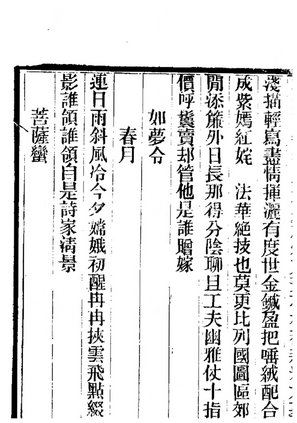 淺描輕寫盡情揮灑有度世金鍼盈把噃絨配合
成紫嫣紅姹　法華絕技也莫更比列國圖區郊
閒添簾外日長那得分陰聊且工夫幽雅仗十指
價呼鬟賣却管他是誰贈嫁
如夢令
春月
連日雨斜風冷今夕嫦娥初醒冉冉挾雲飛點綴
影誰領誰領自是詩家淸景
菩薩蠻